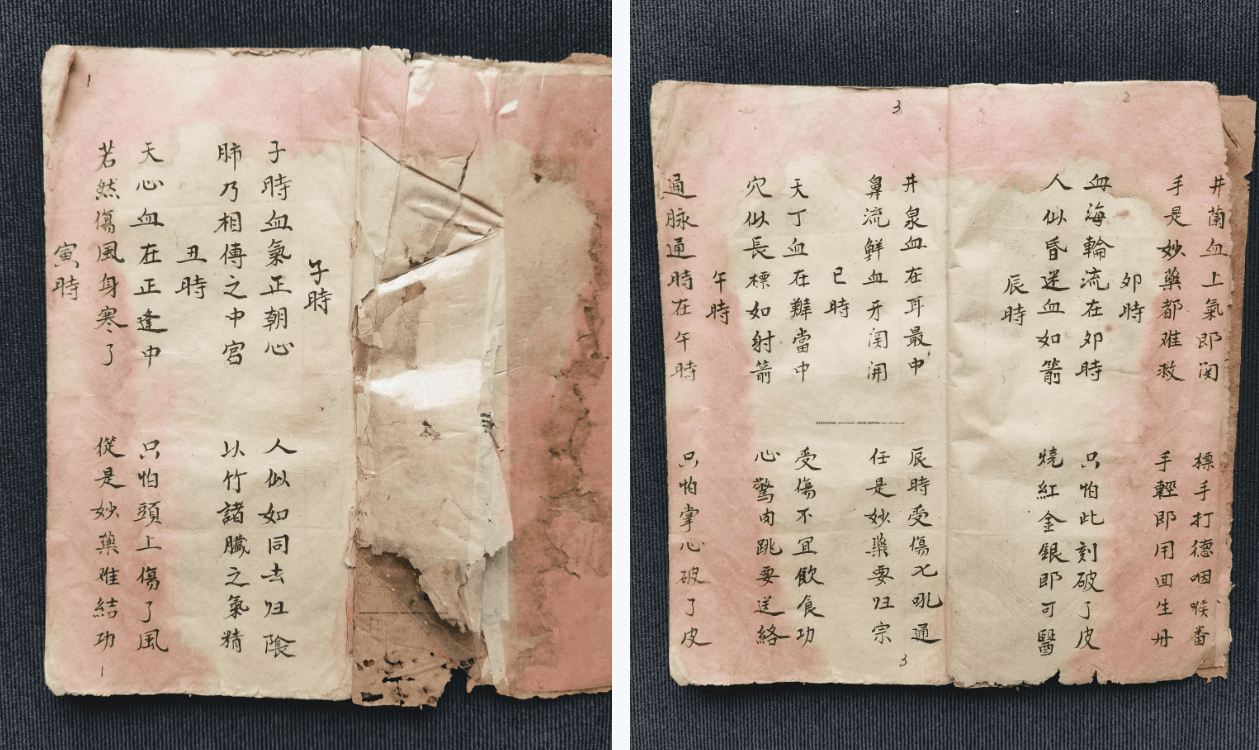 1
子時
子時血氣正朝心
人似如同去归陰
肺乃相傳之中宮
以竹諸臟之氣精
丑時
天心血在正逢中
只怕頭上傷了風
若然傷風身寒了
從是妙藥难結功
寅時
1
2
井蘭血上氣即関
標手打德咽喉畨
手是妙藥都难救
手輕即用回生丹
夘時
血海輪流在夘時
只怕此刻破了皮
人似昏迷血如箭
燒紅金銀即可醫
辰時
3
井泉血在耳最中
辰時受傷七吼通
鼻流鮮血牙関開
任是妙藥要归宗
巳時
天丁血在難當中
受傷不宜飲食功
穴似長標如射箭
心驚肉跳要送絡
午時
通脉通時在午時
只怕掌心破了皮
3